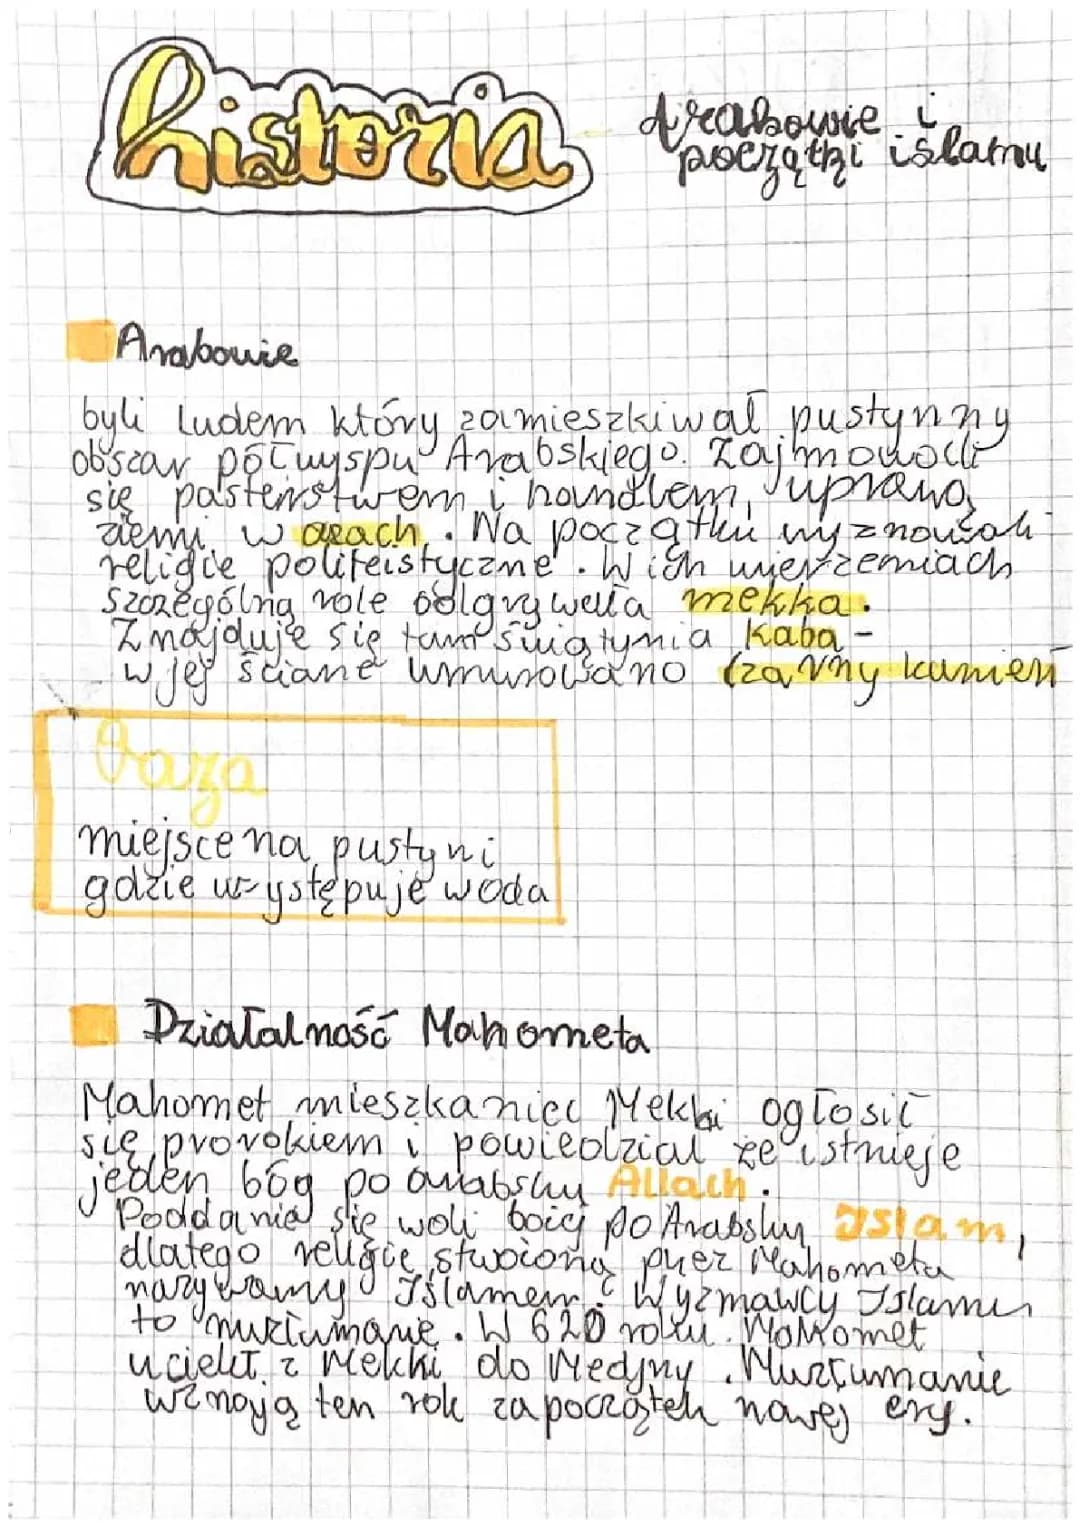 historia
Arabowie i
początki islamu
Arabowie
byli ludem który zamieszkiwał pustynny
obszar półwyspu Arabskiego. Zajmowali
się pasterstwem i handlem, uprawą
ziemi w oazach. Na początku wyznawali
religie politeistyczne. W ich wierzeniach
szczególną role odgrywała mekka.
Znajduje się tam świątynia Kaba -
w jej ściane wmurowano Czarny kamień
Oaza
miejsce na pustyni
gdzie występuje woda
Działalność Mahometa
Mahomet mieszkaniec Mekki ogłosił
się prorokiem i powiedział że istnieje
jeden bóg po arabsku Allach.
Poddanie się woli bożej po Arabsku Islam,
dlatego religię stworzoną przez Mahometa
nazywamy Islamem. Wyznawcy Islamu
to muzłumanie. W 620 roku Mahomet
uciekł z Mekki do Medyny. Muzłumanie
uznają ten rok za początek nowej ery.